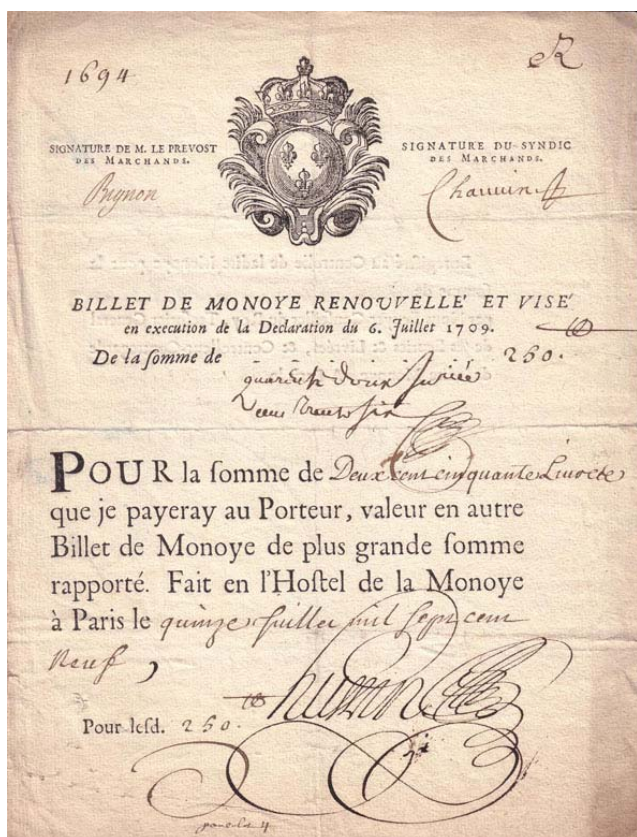 1694
R
SIGNATURE DE M. LE PREVOST
DES MARCHANDS.
Bignon
SIGNATURE DU SYNDIC
DES MARCHANDS.
Chauvin
BILLET DE MONOYE RENOUVELLÉ ET VISÉ
en execution de la Declaration du 6. Juillet 1709.
De la ſomme de 250.
POUR la ſomme de Deux cent cinquante Livres
que je payeray au Porteur, valeur en autre
Billet de Monoye de plus grande ſomme
rapporté. Fait en l'Hoſtel de la Monoye
à Paris le quinze Juillet mil sept cent
Neuf
Pour leſd. 250.